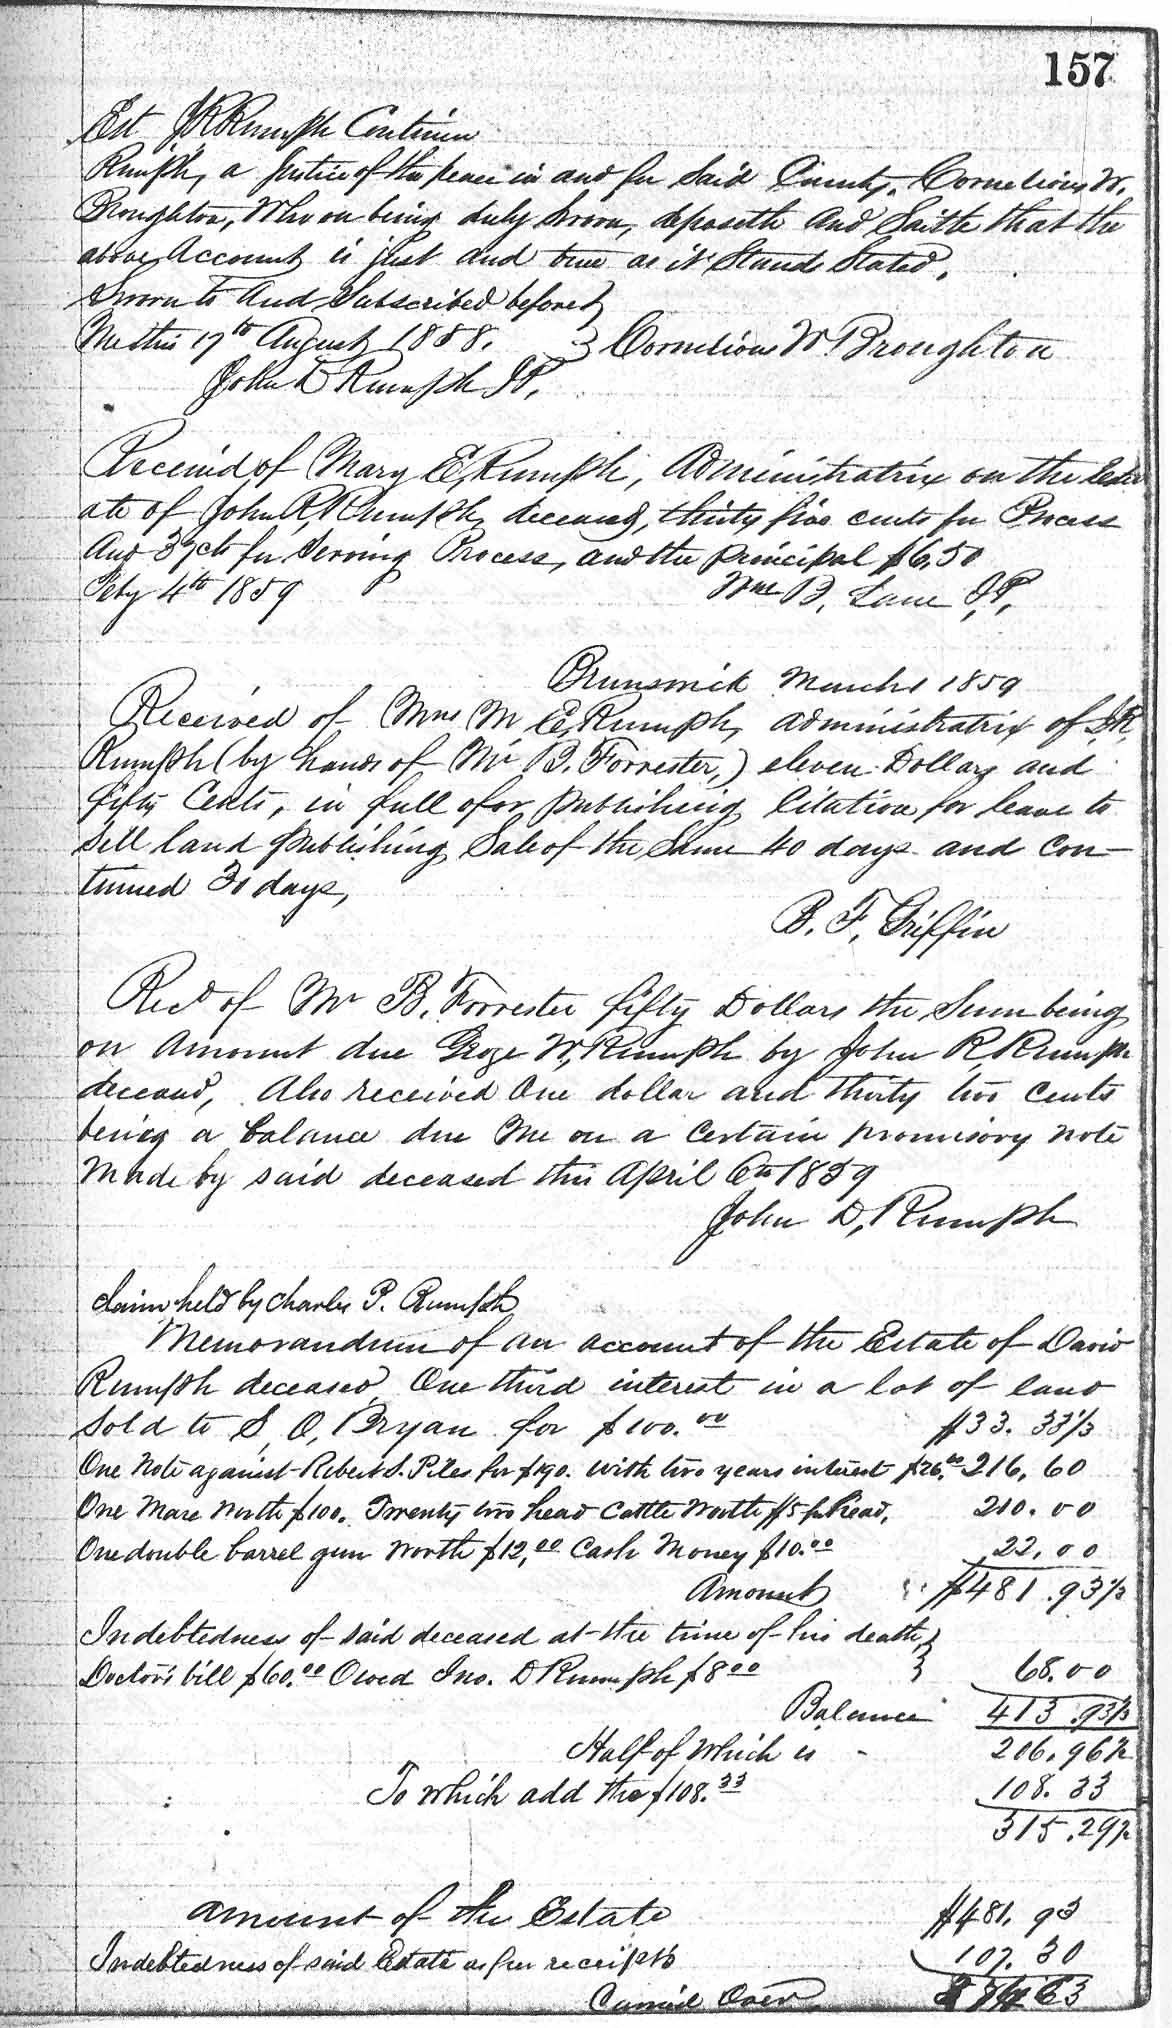 157
Est J R Rumph Continu
Rumph, a Justice of the peace in and for said County, Cornelious W.
Broughton, Who on being duly sworn, deposeth and Saith that the
above Account is just and true as it Stands Stated.
Sworn to And Subscribed before
Me this 17th August 1858. } Cornelious W Broughton
John D Rumph JP,
Received of Mary E, Rumph, Administratrix on the Est
ate of John R, Rumph, deceased, thirty five cents for Process
And 37 cts for Serving Process, and the principal $6,50
Feby 4th 1859 Wm B, Lane JP,
Brunswick March 1 1859
Received of Mrs M E, Rumph, administratrix of J.R.
Rumph (by hands of Mr B. Forrester,) eleven Dollars and
fifty Cents, in full of for publishing Citation for leave to
Sell land publishing Sale of the Same 40 days and con-
tinued 30 days,
B. F, Griffin
Recd of Mr B. Forrester fifty Dollars the Sum being
on Amount due W, Rumph by John R, Rumph
deceased, Also received One dollar and thirty two Cents
being a balance due Me on a Certain promissory note
Made by said deceased this April 6th 1859
John D, Rumph
claim held by Charles P. Rumph
Memorandum of an account of the Estate of David
Rumph deceased, One third interest in a lot of land
Sold to S, O, Bryan for $100.00 $33. 33 1/3
One Note against Robert S. Piles for $190. with two years interest $26.00 216, 60
One Mare Worth $100. Twenty two head Cattle Worth $5 pr head, 210.00
One double barrel gun Worth $12,00 Cash Money $10.00 22,00
Amount $481.93 1/3
Indebtedness of said deceased at the time of his death, }
Doctor's bill $60.00 Owed Jno. D Rumph $8 00 } 68.00
Balance 413.93 1/3
Half of Which is - 206.96 1/2
To Which add the $108.33 108.33
315.29 1/2
Amount of the Estate $481.93
Indebtedness of said Estate as per receipts 107.30
Carried Over